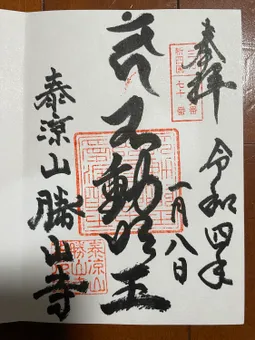 奉拝
令和四年
一月八日
不動明王
泰涼山勝山寺
泰涼山
勝山寺